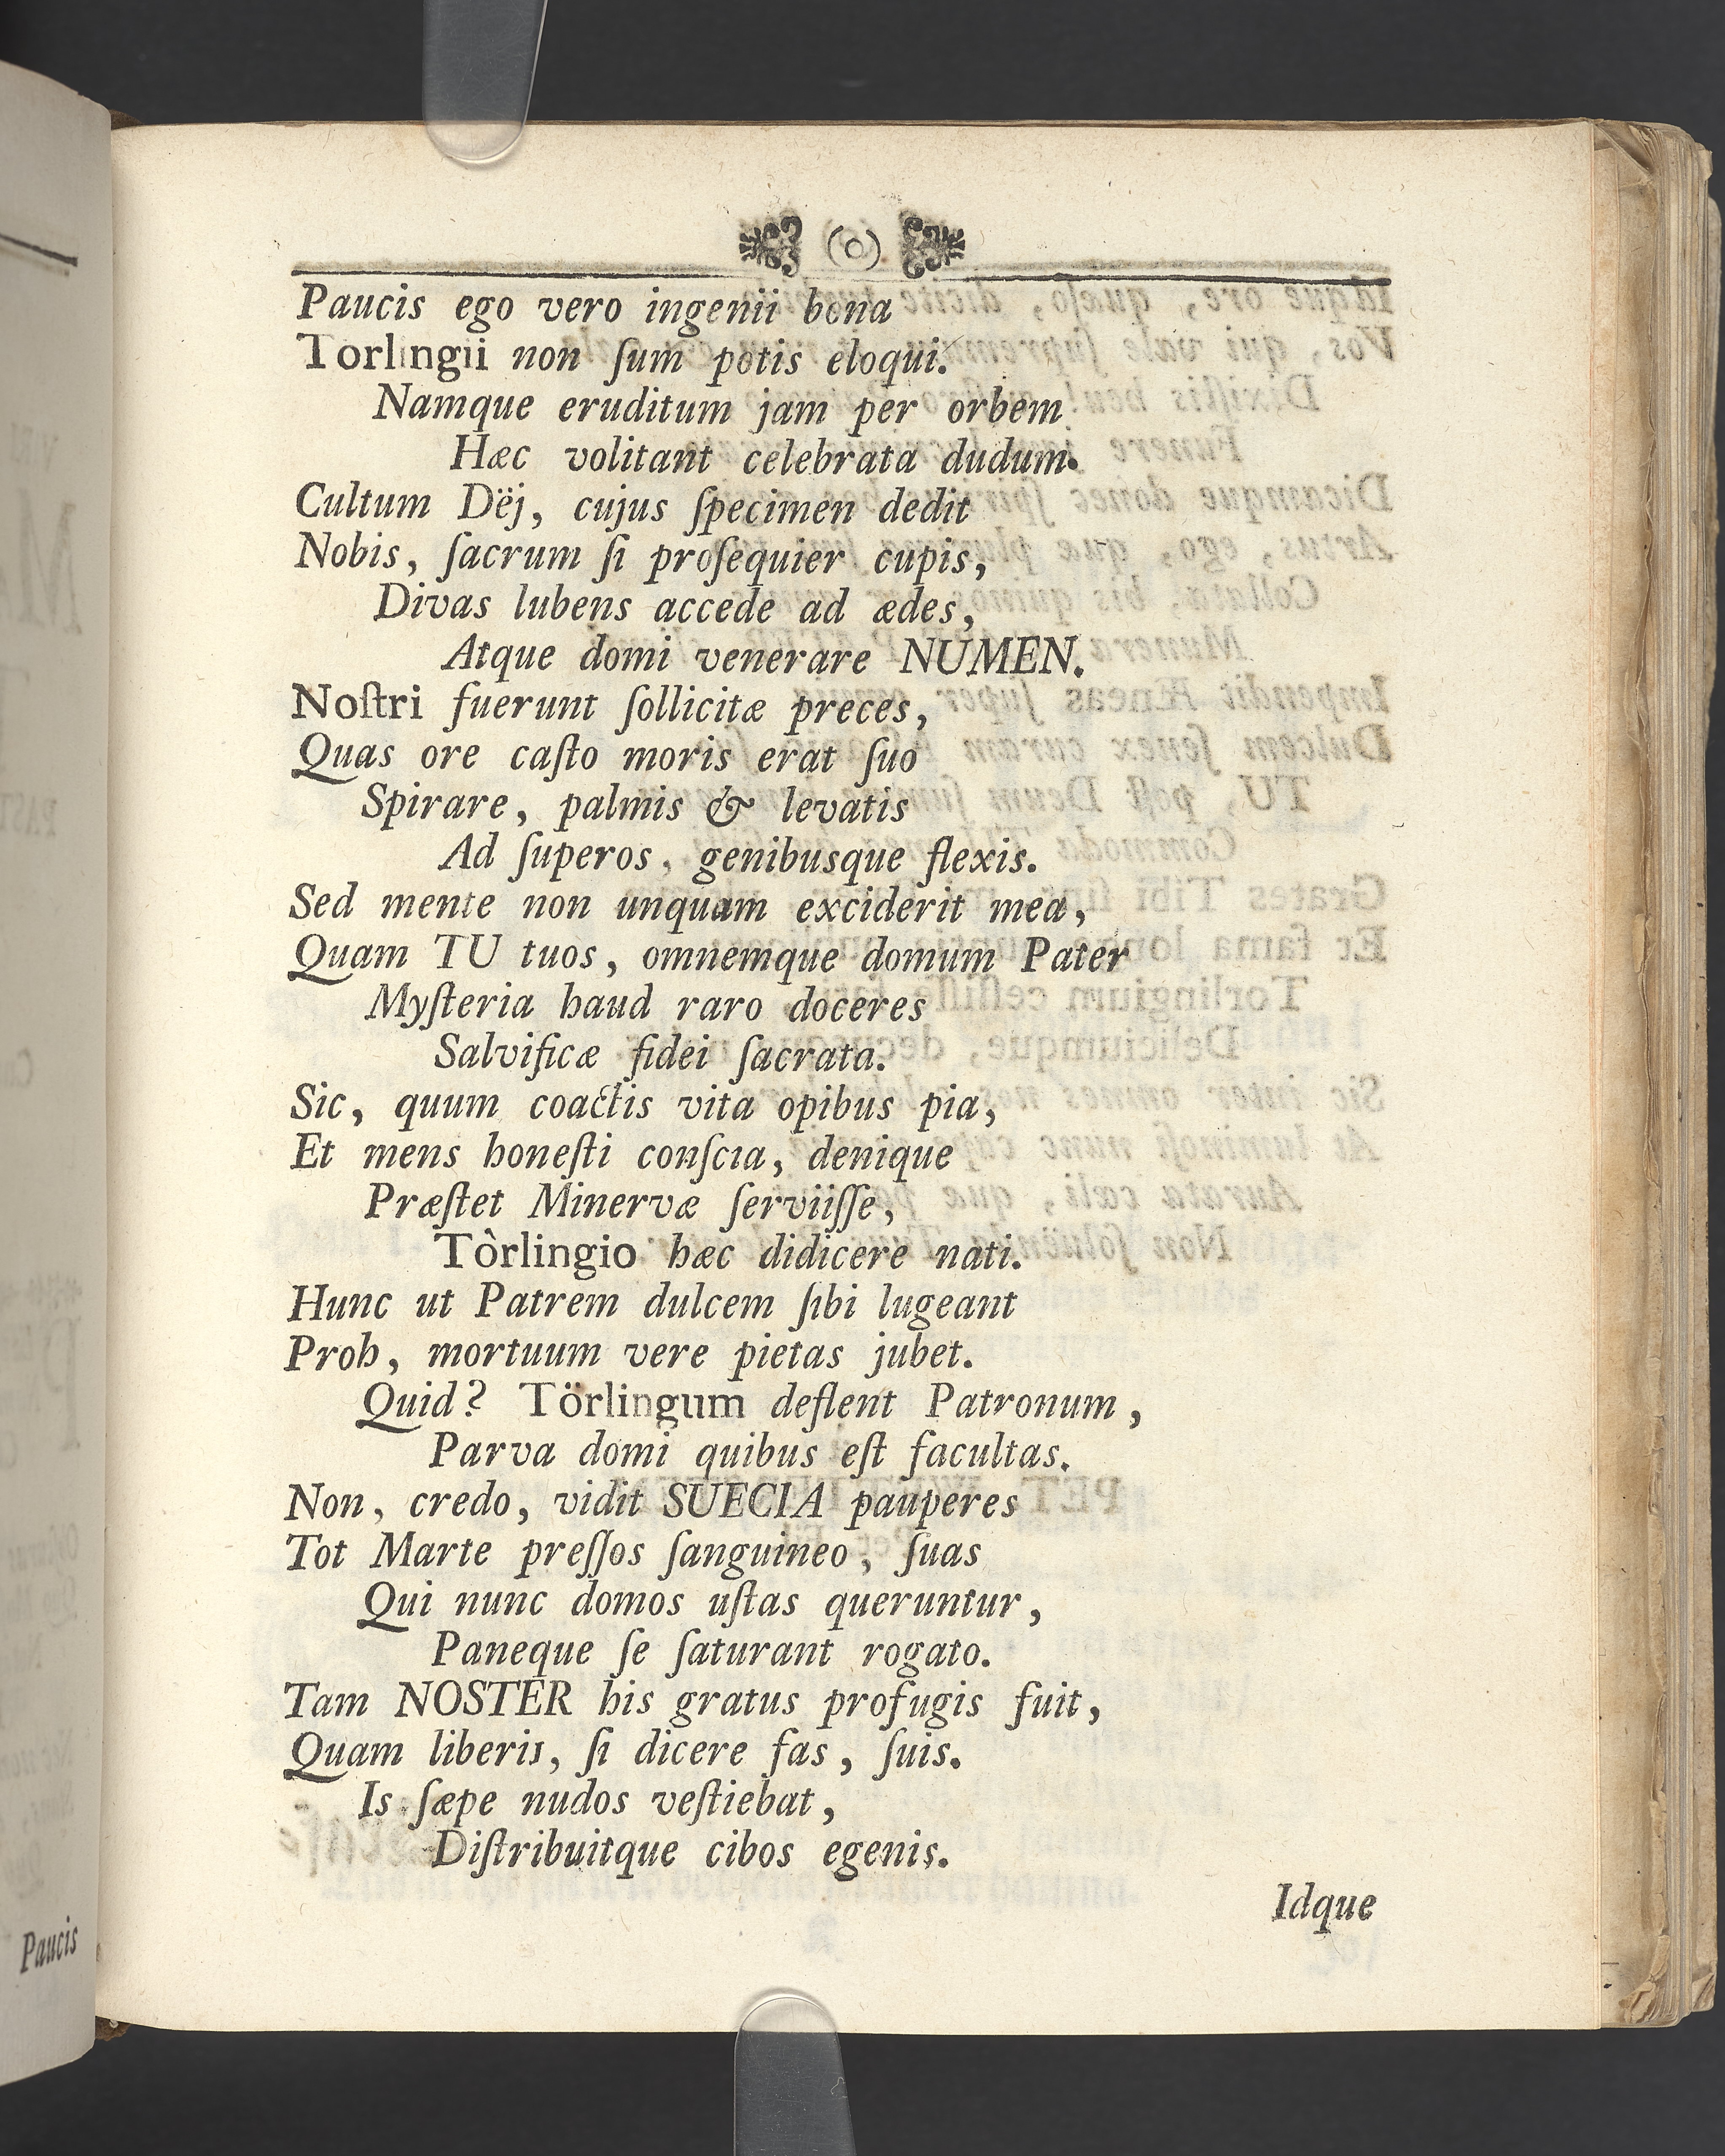 Paucis ego vero ingenii bona
Torlingii non ſum potis eloqui.
Namque eruditum jam per orbem
Hæc volitant celebrata dudum.
Cultum Dëj, cujus ſpecimen dedit
Nobis, ſacrum ſi proſequier cupis,
Divas lubens accede ad ædes,
Atque domi venerare NUMEN.
Noſtri fuerunt ſollicitæ preces,
Quas ore caſto moris erat ſuo
Spirare, palmis & levatis
Ad ſuperos, genibusque flexis.
Sed mente non unquam exciderit mea,
Quam TU tuos, omnemque domum Pater
Myſteria haud raro doceres
Salvificæ fidei ſacrata.
Sic, quum coactis vita opibus pia,
Et mens honeſti conſcia, denique
Præſtet Minervæ ſerviiſſe,
Tòrlingio hæc didicere nati.
Hunc ut Patrem dulcem ſibi lugeant
Proh, mortuum vere pietas jubet.
Quid? Törlingum deflent Patronum,
Parva domi quibus eſt facultas.
Non, credo, vidit SUECIA pauperes
Tot Marte preſſos ſanguineo, ſuas
Qui nunc domos uſtas queruntur,
Paneque ſe ſaturant rogato.
Tam NOSTER his gratus profugis fuit,
Quam liberis, ſi dicere fas, ſuis.
Is ſæpe nudos veſtiebat,
Diſtribuitque cibos egenis.
Idque
Paucis